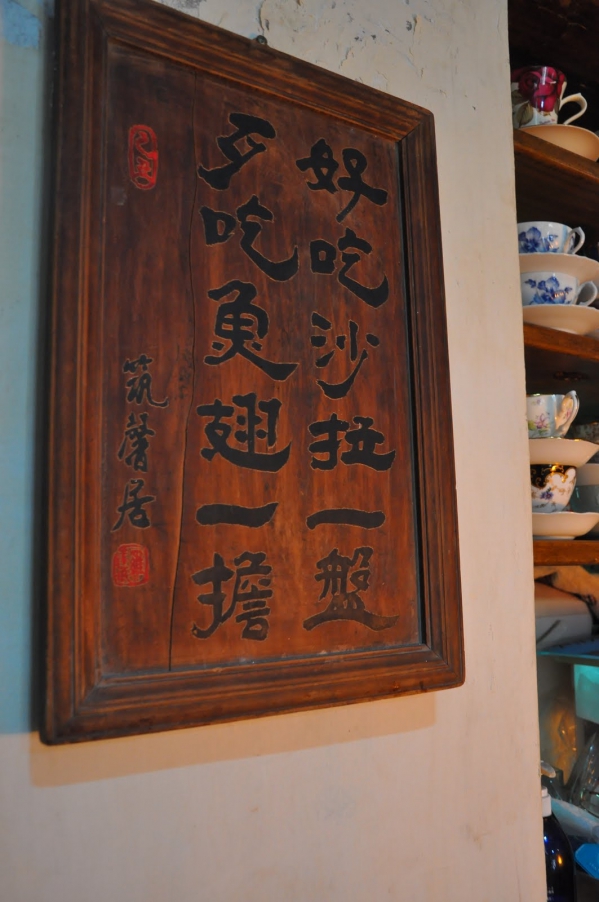 好吃沙拉一盤
歹吃魚翅一擔
筑馨居